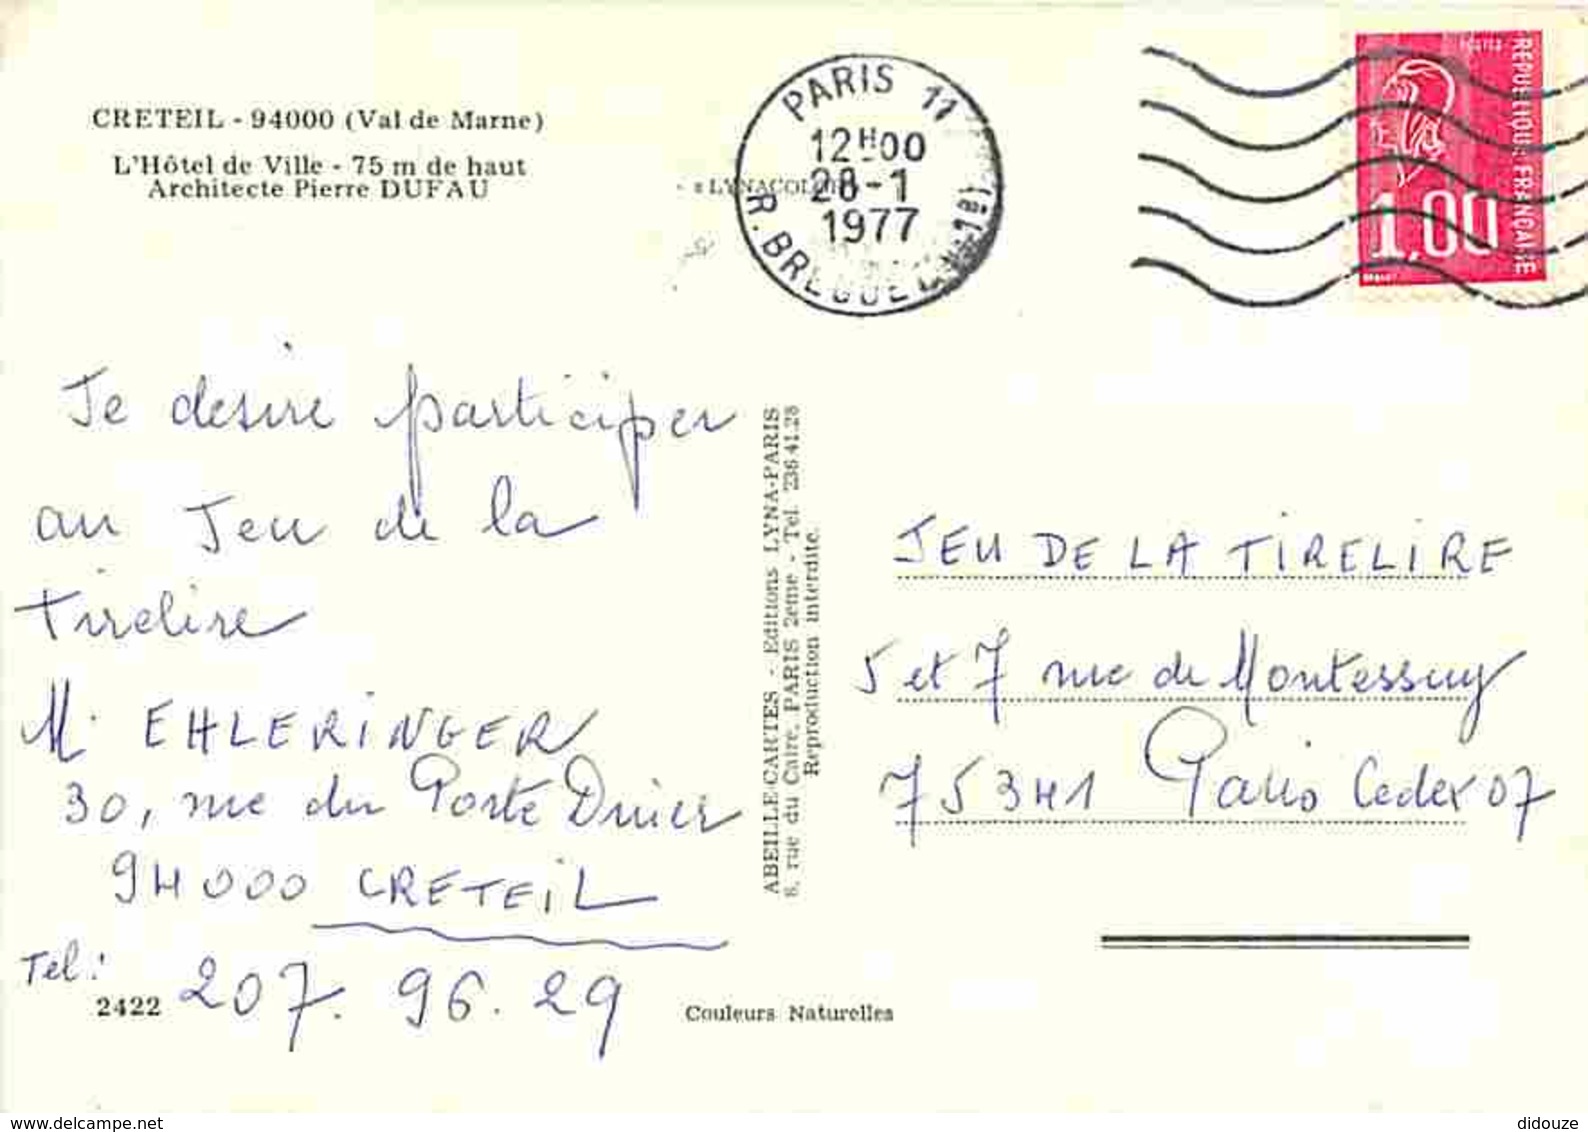 CRETEIL - 94000 (Val de Marne)
L'Hôtel de Ville - 75 m de haut
Architecte Pierre DUFAU
LYNACOLOR
PARIS 11
12H00
28-1
1977
R. BREGUET
POSTES
REPUBLIQUE FRANCAISE
1,00
Je desire participer
au Jeu de la
Tirelire
M. EHLERINGER
30, rue du Porte Dinier
94000 CRETEIL
Tel: 207. 96. 29
2422
ABEILLE-CARTES - Editions LYNA-PARIS
8, rue du Caire, PARIS 2eme - Tel. 236 41.28
Reproduction interdite.
JEU DE LA TIRELIRE
5 et 7 rue de Montessuy
75341 Paris Cedex 07
Couleurs Naturelles
www.delcampe.net
didouze